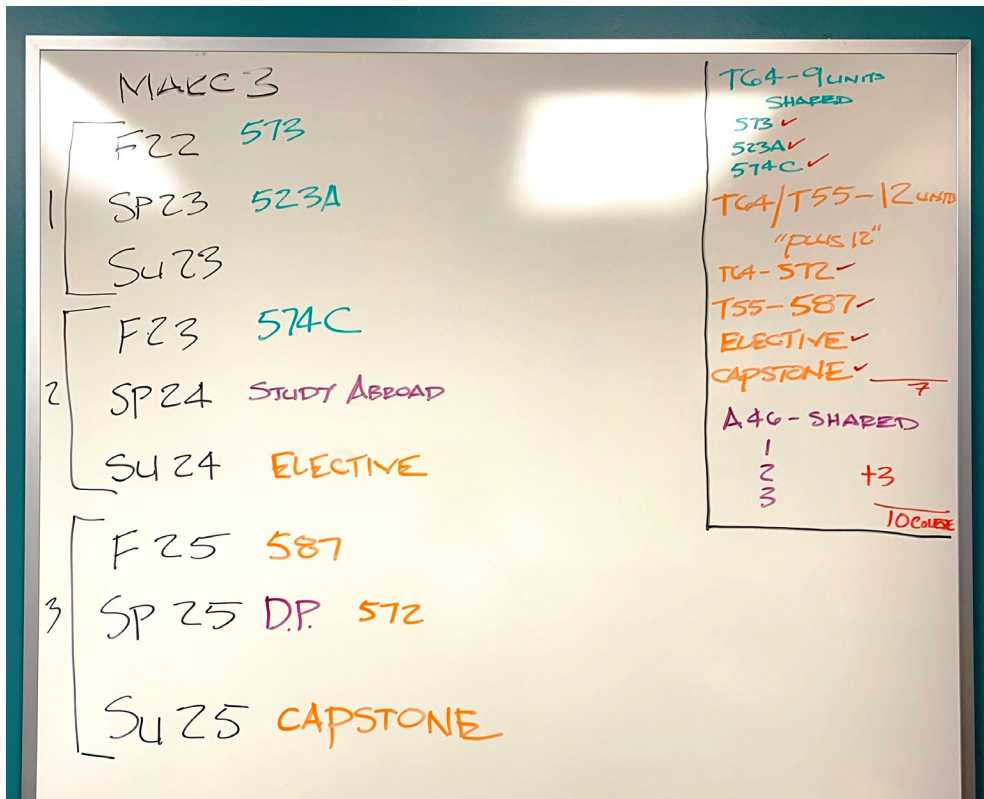 MAKE 3
1
F22 573
SP23 523A
Su 23
2
F23 574C
SP 24 STUDY ABROAD
SU 24 ELECTIVE
3
F 25 587
SP 25 D.P. 572
Su 25 CAPSTONE
T64-9 UNITS
SHARED
573 ✓
523A ✓
574C ✓
T64/T55-12 UNITS
"PLUS 12"
T64-572 ✓
T55-587 ✓
ELECTIVE ✓
CAPSTONE ✓
7
A46-SHARED
1
2 +3
3
10 COURSE